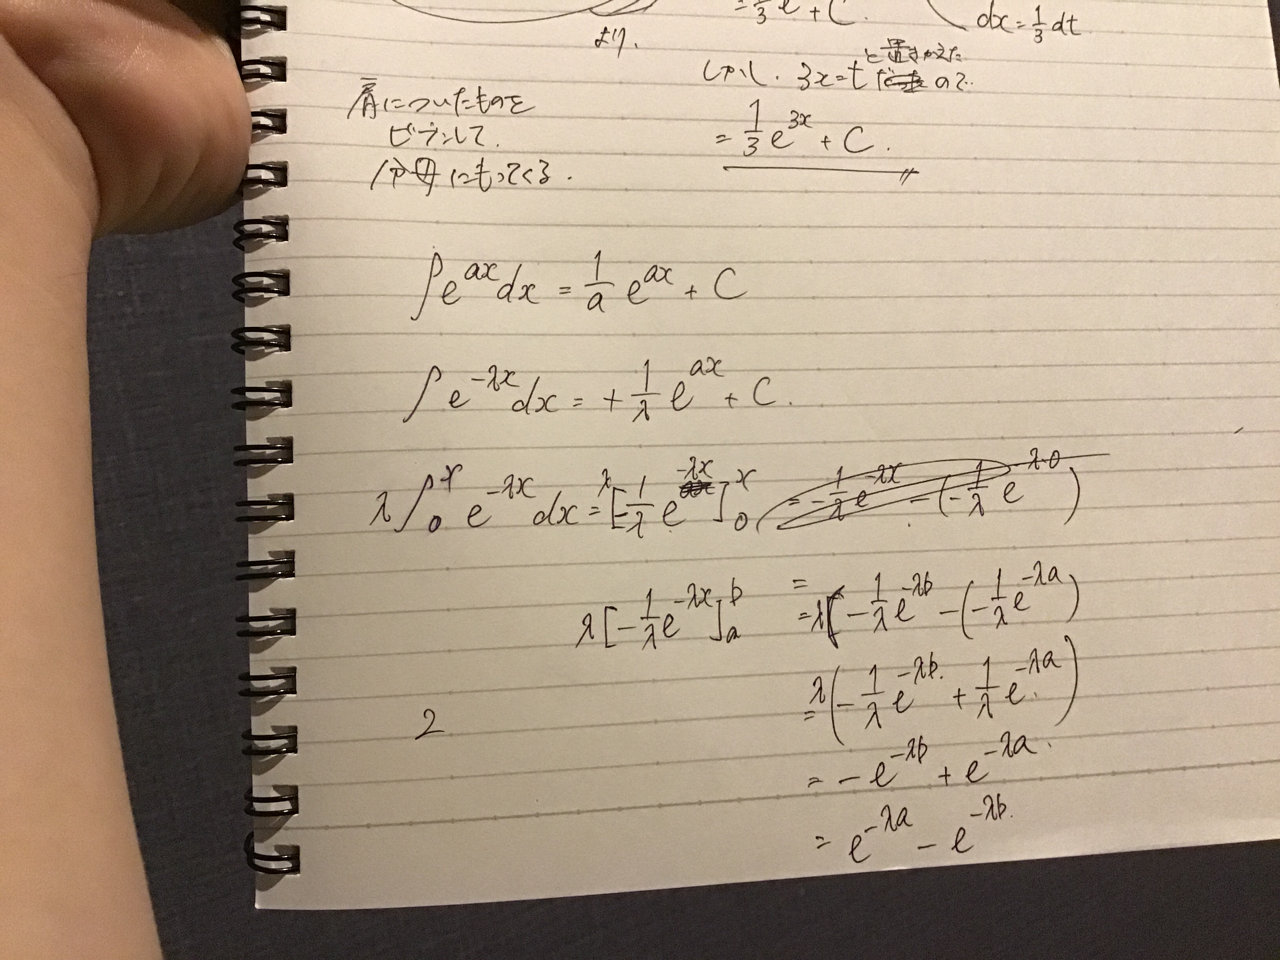 = 1/3 e + C.
dx = 1/3 dt
より.
と置きかえた
しかし. 3x = t ので.
肩についたものを
ビブンして.
分母にもってくる.
= 1/3 e^{3x} + C.
∫e^{ax}dx = 1/a e^{ax} + C
∫e^{-λx}dx = + 1/λ e^{ax} + C.
λ∫_0^x e^{-λx}dx = λ[-1/λ e^{-λx}]_0^x = -1/λ e^{-λx} - (-1/λ e^{-λ·0})
λ[-1/λ e^{-λx}]_a^b = = λ[-1/λ e^{-λb} - (-1/λ e^{-λa})
= λ(-1/λ e^{-λb} + 1/λ e^{-λa})
2
= -e^{-λb} + e^{-λa}.
= e^{-λa} - e^{-λb}.